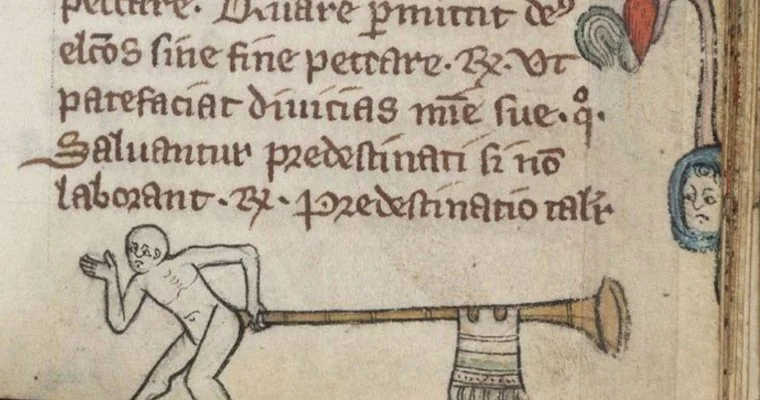 peccare. Q. Quare p̄mittit deꝰ
elc̄os sine fine peccare. R̷. Ut
patefaciat diuicias mīe sue. q̊.
Saluantur predestinati si nō
laborant. R̷. Predestinatio talr̄